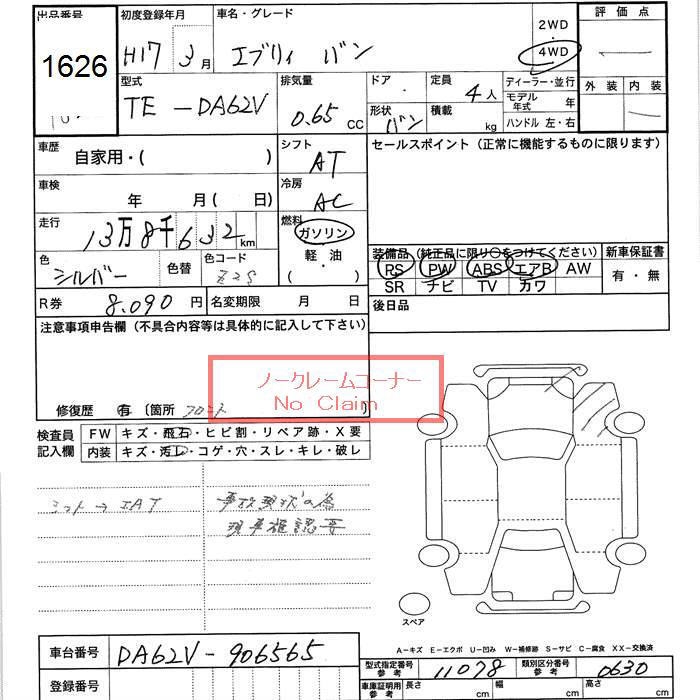 出品番号 初度登録年月 車名・グレード 2WD 評価点
1626 H17 3月 エブリィ バン 4WD
型式 排気量 ドア 定員 ディーラー・並行 外装 内装
TE-DA62V 0.65 CC 4人 モデル年式 年
形状 バン 積載 kg ハンドル 左・右
車歴 自家用・( ) シフト AT セールスポイント (正常に機能するものに限ります)
車検 年 月( 日) 冷房 AC
走行 13万8千632km 燃料 ガソリン
軽油
( )
装備品 (純正品に限り○をつけてください) 新車保証書
色 シルバー 色替 色コード Z2S RS PW ABS エアB AW 有・無
SR ナビ TV カワ
R券 8.090円 名変期限 月 日 後日品
注意事項申告欄 (不具合内容等は具体的に記入して下さい)
ノークレームコーナー
No Claim
修復歴 有 〔箇所 フロント 〕
検査員記入欄 FW キズ・飛石・ヒビ割・リペア跡・X要
内装 キズ・汚レ・コゲ・穴・スレ・キレ・破レ
シフト→IAT 事故現状の為
現車確認要
スペア
A-キズ E-エクボ U-凹み W-補修跡 S-サビ C-腐食 XX-交換済
車台番号 DA62V-906565
型式指定番号 参考 11078 類別区分番号 参考 0630
登録番号 車庫証明用 参考 長さ cm 幅 cm 高さ cm